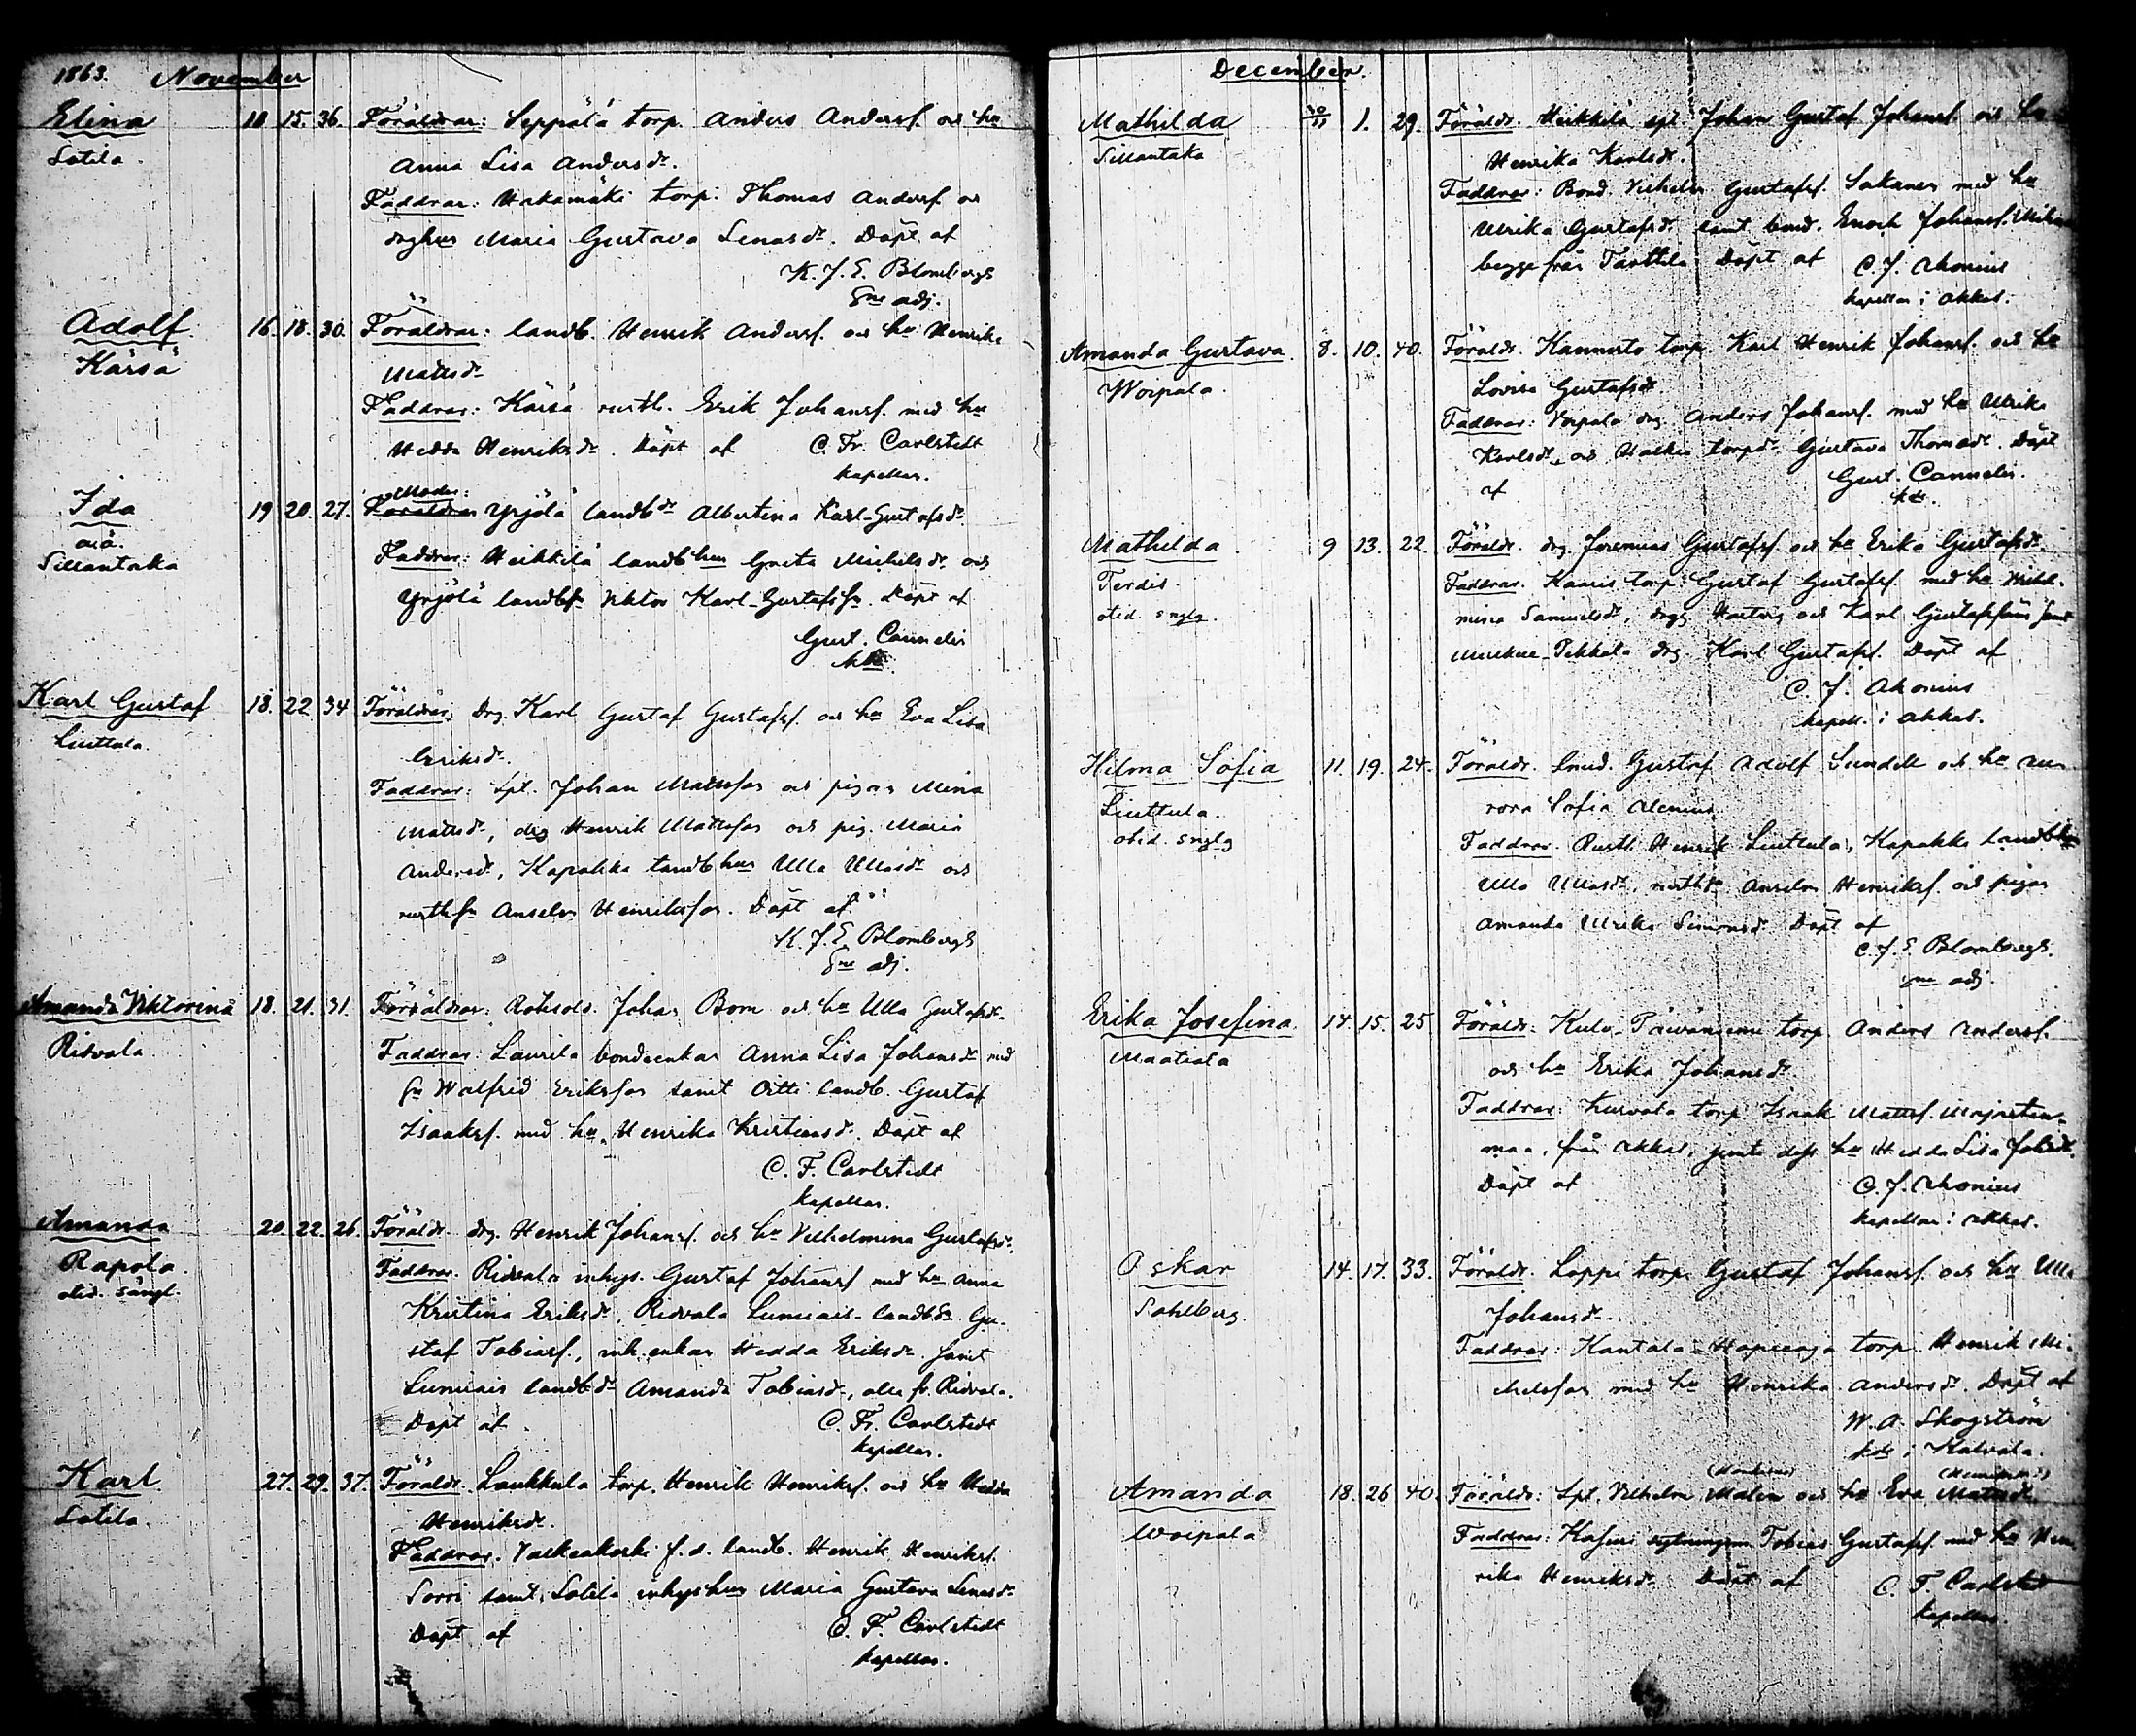 1863. November
Elina 10 15. 36. Föräldrar: Seppälä torp. Anders Andersf. och hu
Sotila. Anna Lisa Andersdr.
Faddrar: Hakamäki torp: Thomas Andersf. och
drghus Maria Gustava Lenasdr. Döpt af
K. J. E. Blombergh
Sne adj.
Adolf 16. 18. 30. Föräldrar: landb. Henrik Andersf. och hu Henrika
Kärsä Mattsdr
Faddrar: Kärsä rusth. Erik Johansf. med hu
Hedda Henriksdr. Döpt af C. Fr. Carlstedt
kapellan.
Moder:
Ida 19 20. 27. Föräldrar Yrjölä landbdr Albertina Karl-Gustafsdr
oä.
Sillantaka Faddrar: Heikkilä landbhun Greta Michelsdr och
Yrjölä landbsn Viktor Karl-Gustafssn. Döpt af
Gust. Cannelin
khde.
Karl Gustaf 18. 22 34 Föräldrar: Drg. Karl Gustaf Gustafsf. och hu Eva Lisa
Liuttula. Eriksdr.
Faddrar: Spl. Johan Mattsson och pigan Mina
Mattsdr, drg Henrik Mattsson och pig. Maria
Andersdr, Kapakka landbhun Ulla Ullasdr och
rusthsn Anselm Henriksson. Döpt af
K. J. E. Blombergh
Sne adj.
Amanda Viktorina 18. 21. 31. Föräldrar: Rotesold. Johan Bom och hu Ulla Gustafsdr
Ridvala Faddrar: Laurila bondeenkan Anna Lisa Johansdr med
sn Walfrid Eriksson samt Otti landb. Gustaf
Isaaksf. med hu Henrika Kristiansdr. Döpt af
C. F. Carlstedt
kapellan.
Amanda 20. 22. 26. Föräldr. drg. Henrik Johansf. och hu Vilhelmina Gustafsdr.
Rapola. Faddrar. Ridvala inhys. Gustaf Johansf med hu Anna
olid. sängl. Kristina Eriksdr, Ridvala Lumiais-landbsn Gu-
staf Tobiasf., inh.enkan Hedda Eriksdr samt
Lumiais landbdr Amanda Tobiasdr, alla fr. Ridvala.
Döpt af C. Fr. Carlstedt
kapellan.
Karl 27. 29. 37. Föräldr. Laukkula torp. Henrik Henriksf. och hu Hedda
Sotila. Henriksdr.
Faddrar. Valkeakoski f.d. landb. Henrik Henriksf.
Sorri samt Sotila inhyshun Maria Gustava Lenasdr
Döpt af C. F. Carlstedt
kapellan.
December.
Mathilda 30/11 1. 29. Föräldr. Heikkilä spl. Johan Gustaf Johansf och hu
Sillantaka Henrika Karlsdr.
Faddrar: Bond. Vilhelm Gustafsf. Sakanen med hu
Ulrika Gustafsdr samt bond. Enoch Johansf.
begge från Tarttila Döpt af C. J. Ahonius
kapellan i Akkas.
Amanda Gustava. 8. 10. 40. Föräldr. Kannisto torp. Karl Henrik Johansf. och hu
Woipala. Lovisa Gustafsdr
Faddrar: Voipala drg. Anders Johansf. med hu Ulrika
Karlsdr, och torpdr Gustava Thomasdr. Döpt
af Gust. Cannelin.
khde.
Mathilda 9 13. 22. Föräldr. drg. Jeremias Gustafsf. och hu Erika Gustafsdr.
Terdis. Faddrar. Kaaris torp. Gustaf Gustafsf. med hu Vilhel-
olid. sngl. mina Samuelsdr, drgg Hartvig och Karl Gustafssöner samt
Pekkala drg. Karl Gustafsf. Döpt af
C. J. Ahonius
kapell. i Akkas.
Hilma Sofia 11. 19. 24. Föräldr. Smed. Gustaf Adolf Sundell och hu Au-
Liuttula. rora Sofia Alenius
olid. sngl. Faddrar. Rusth. Henrik Liuttula, Kapakka Landbhun
Ulla Ullasdr, rusthsn Anselm Henriksf. och pigan
Amanda Ulrika Simonsdr Döpt af
C. J. E. Blombergh.
sne adj.
Erika Josefina. 14. 15. 25 Föräldr: Kulo-Päiväniemi torp. Anders Andersf.
Maatiala och hu Erika Johansdr
Faddrar: Kurvola torp Isaak Mattsf. Majasten-
maa, från Akkas, jemte dess hu Hedda Lisa Johsdr.
Döpt af C. J. Ahonius
kapellan i Akkas.
Oskar 14. 17. 33. Föräldr. Loppi torp. Gustaf Johansf. och hu Ulla
Sahlberg. Johansdr.
Faddrar: Kantala-Hapeeoja torp. Henrik Mi-
chelsson med hu Henrika Andersdr. Döpt af
W. A. Skogström
khde i Kalvola.
(Henriksdr)
Amanda 18. 26 40. Föräldr: Spl. Vilhelm Malm och hu Eva Mattsdr.
Woipala Faddrar: Tobias Gustafsf. med hu Hen-
rika Henriksdr Döpt af C. F. Carlstedt
kapellan.